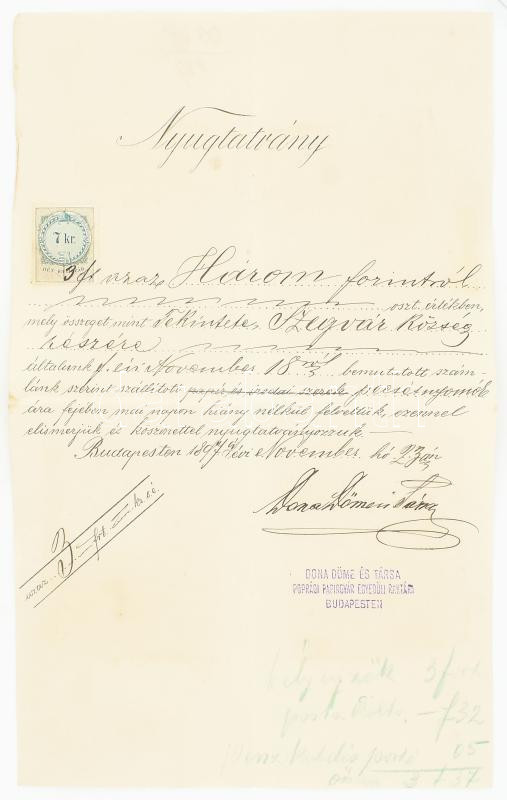 Nyugtatvány
7 kr.
3 ft azaz Három forintról
oszt. értékben,
mely összeget mint Tekintetes Szegvár Község
részére
általunk f. évi November 18 ról bemutatott szám-
lánk szerint szállitott papir és irodai szerek pecsétnyomók
ára fejében, mai napon hiány nélkül felvettük, ezennel
elismerjük és köszönettel nyugtatványozzuk.
Budapesten 1897 évi November hó
Dona Döme és Társa
azaz 3 frt. kr. o. é.
DONA DÖME ÉS TÁRSA
POPRÁDI PAPIRGYÁR EGYEDÜLI RAKTÁRA
BUDAPESTEN
3
posta 32
05
3 f 37